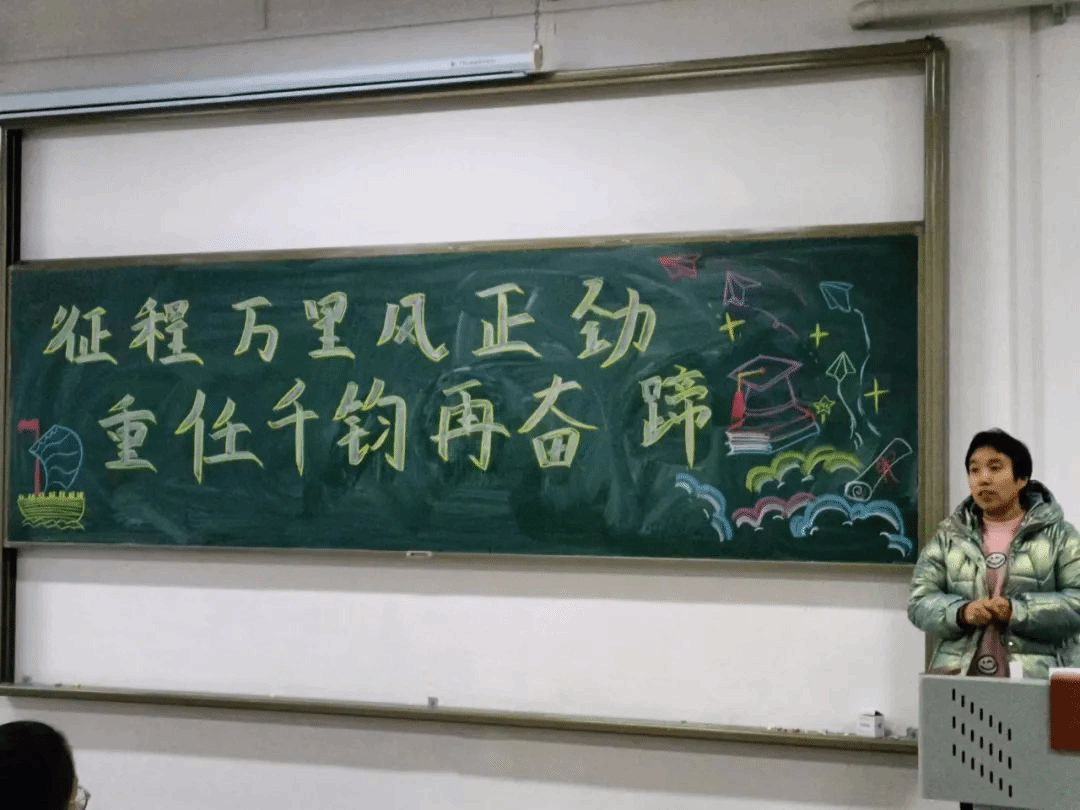 征程万里风正劲
重任千钧再奋蹄